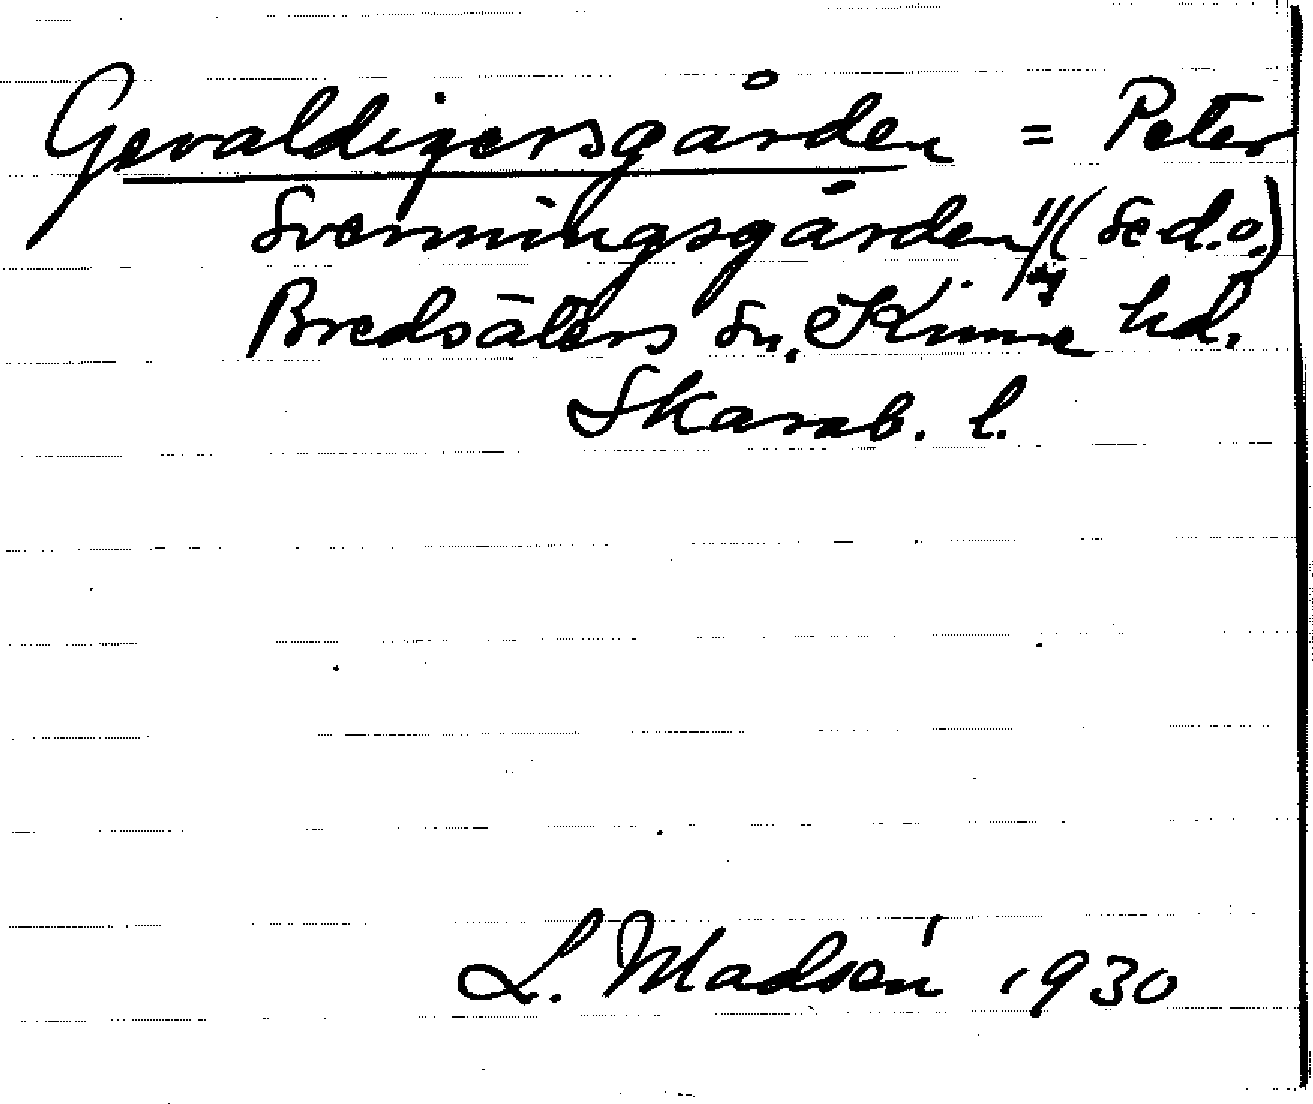 Gevaldigersgården = Peter
Svenningsgården (se d.o.)
Bredsäters sn, Kinne hd.
Skarab. l.
L. Madsén 1930